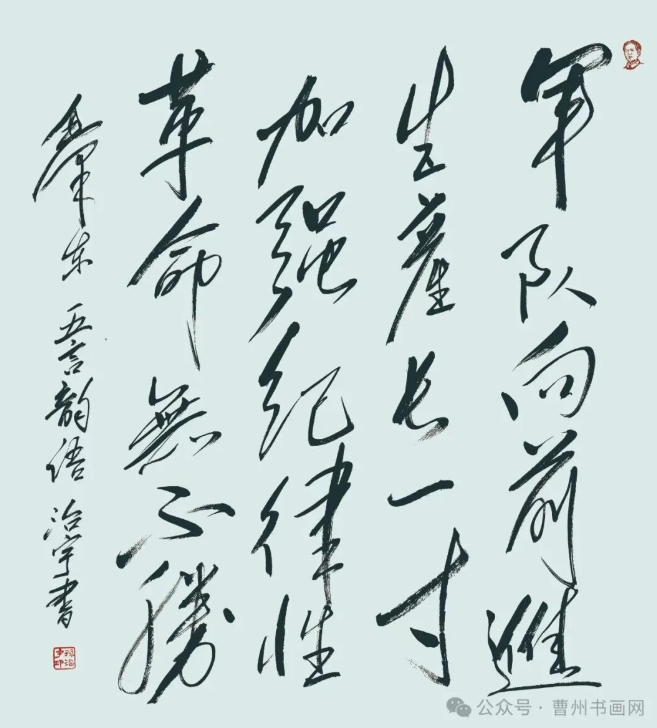 军队向前進
生産长一寸
加强纪律性
革命無不勝
泽东 五言韵语 治宇書
公众号·曹州书画网